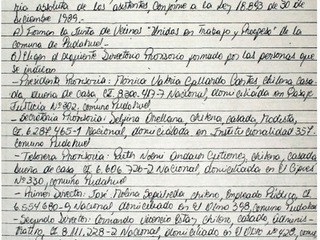 ría absoluta de los asistentes conforme a la Ley 18.893 de 30 de
diciembre 1989.-
a) Formar la Junta de Vecinos "Unidos en Trabajo y Progreso" de la
comuna de Pudahuel.
b) Eligen el siguiente Directorio Provisorio formado por las personas que
se indican
- Presidenta Provisoria: Monica Valeria Gallardo chilena casa
da, dueña de casa CI Nacional, domiciliada en Pasaje
Nº 302, comuna Pudahuel.
- Secretaria Provisoria: Orellana, chilena, casada, Modista,
CI 6.287.465-1 Nacional, domiciliada en Institucionalidad 357.
comuna Pudahuel.
- Tesorera Provisoria: Edith Noemi Gutierrez, chilena, casada
dueña de casa CI 6.606.726-2 Nacional domiciliada en El Cipres
Nº 330, comuna Pudahuel.
- Primer Director: José Molina Sepúlveda chileno, Empleado Público, CI
6.554.680-9 Nacional domiciliado en El Olmo 398 comuna Pudahuel
- Segundo Director: Armando Vicencio chileno, casado, Adminis-
trativo, CI 8.111.228-2 Nacional, domiciliado en Nº 628, comuna